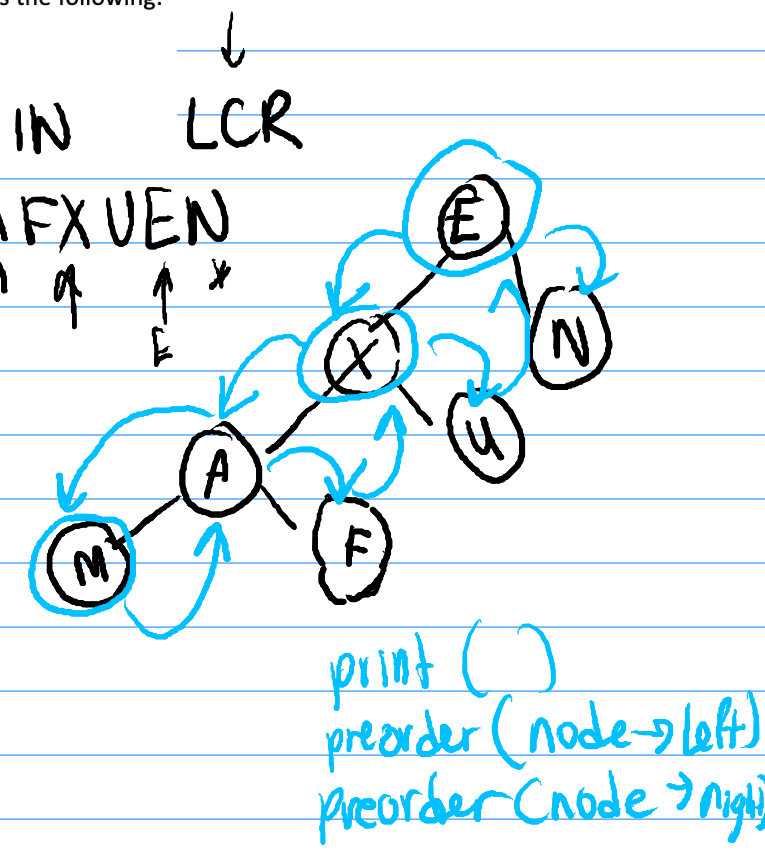 s the following:
IN LCR
FXUEN
E
E
X
N
A
U
M
F
print ( )
preorder (node→left)
preorder (node→right